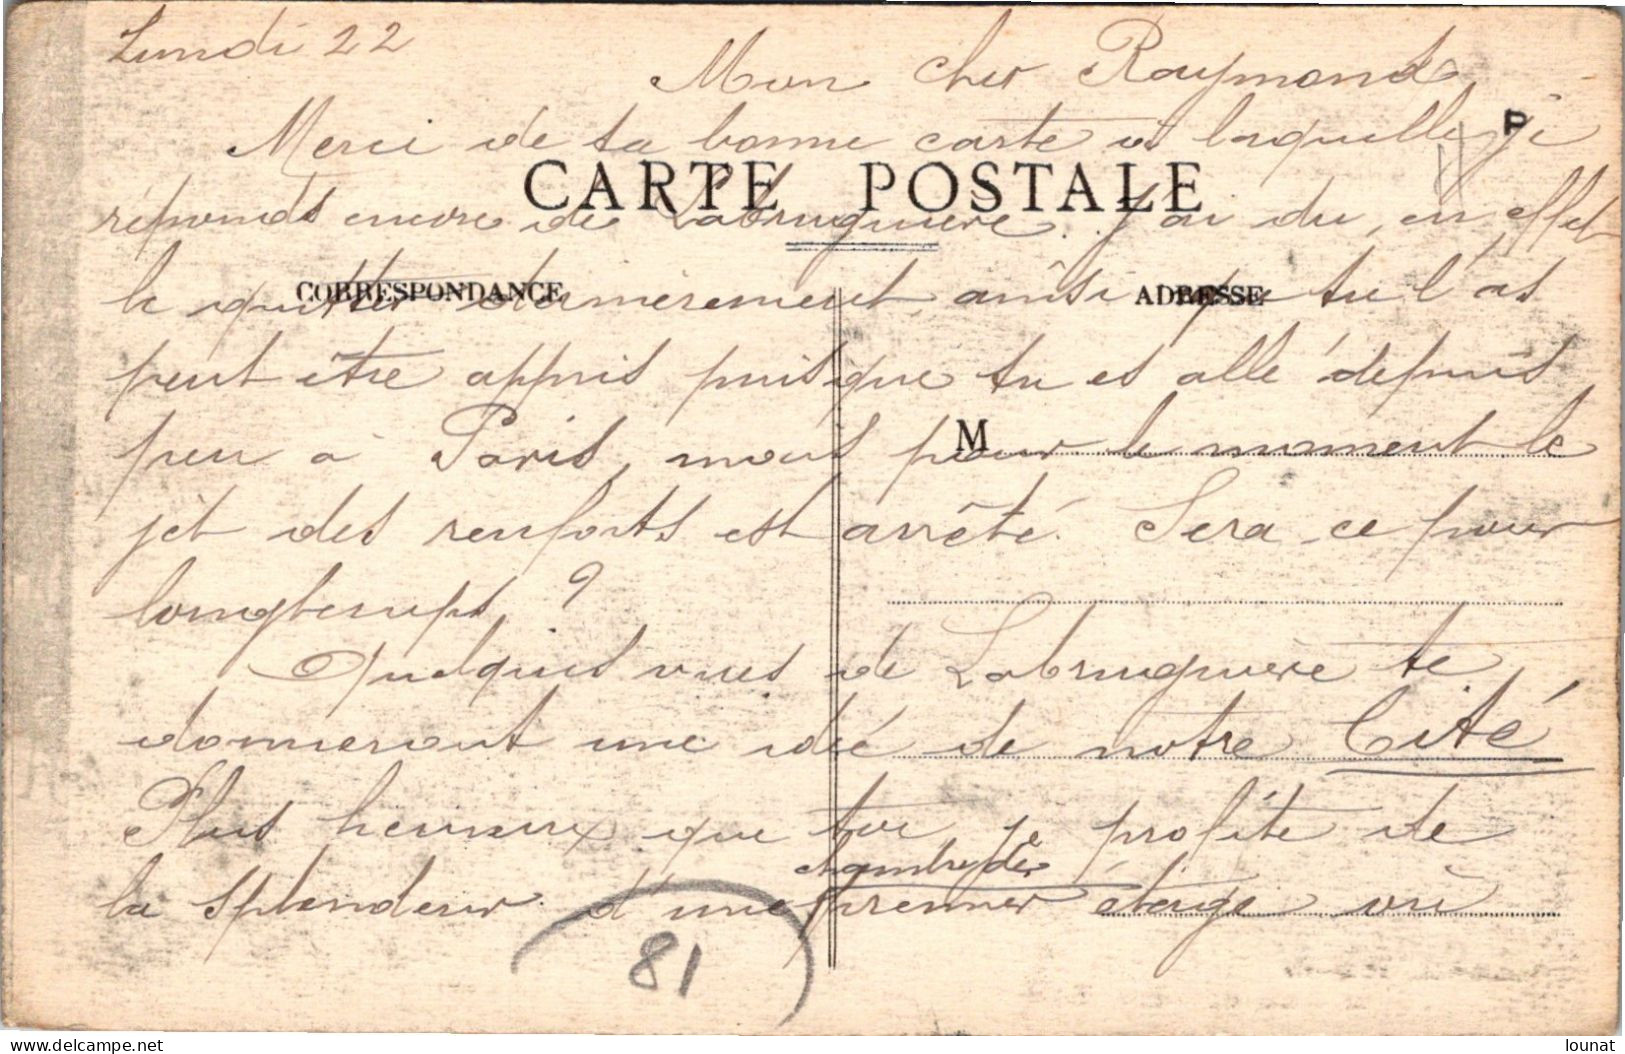 Lundi 22
Mon cher Raymond
P
Merci de ta bonne carte à laquelle je
CARTE POSTALE
réponds encore de Labruguière. J'ai du, en effet
CORRESPONDANCE
ADRESSE
le quitter dernièrement, ainsi que tu l'as
peut être appris puisque tu es allé depuis
M
peu à Paris, mais pour le moment le
jet des renforts est arrêté. Sera-ce pour
longtemps ?
Quelques vues de Labruguière te
donneront une idée de notre Cité
Plus heureux que toi, je profite de
chambre de
la splendeur d'une premier étage où
81
delcampe.net
lounat